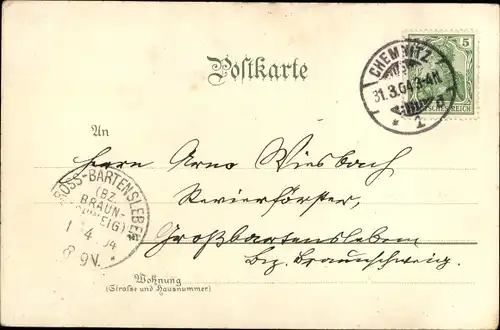 Postkarte
5
DEUTSCHES REICH
CHEMNITZ
31.3.04. 3-4N
* 1
An
Herrn Arno Wiesbach
Revierförster,
Großbartensleben
bz. Braunschweig.
GROSS-BARTENSLEBEN
(BZ.
BRAUN-
SCHWEIG)
1 4 04
8-9V.
*
Wohnung
(Straße und Hausnummer)